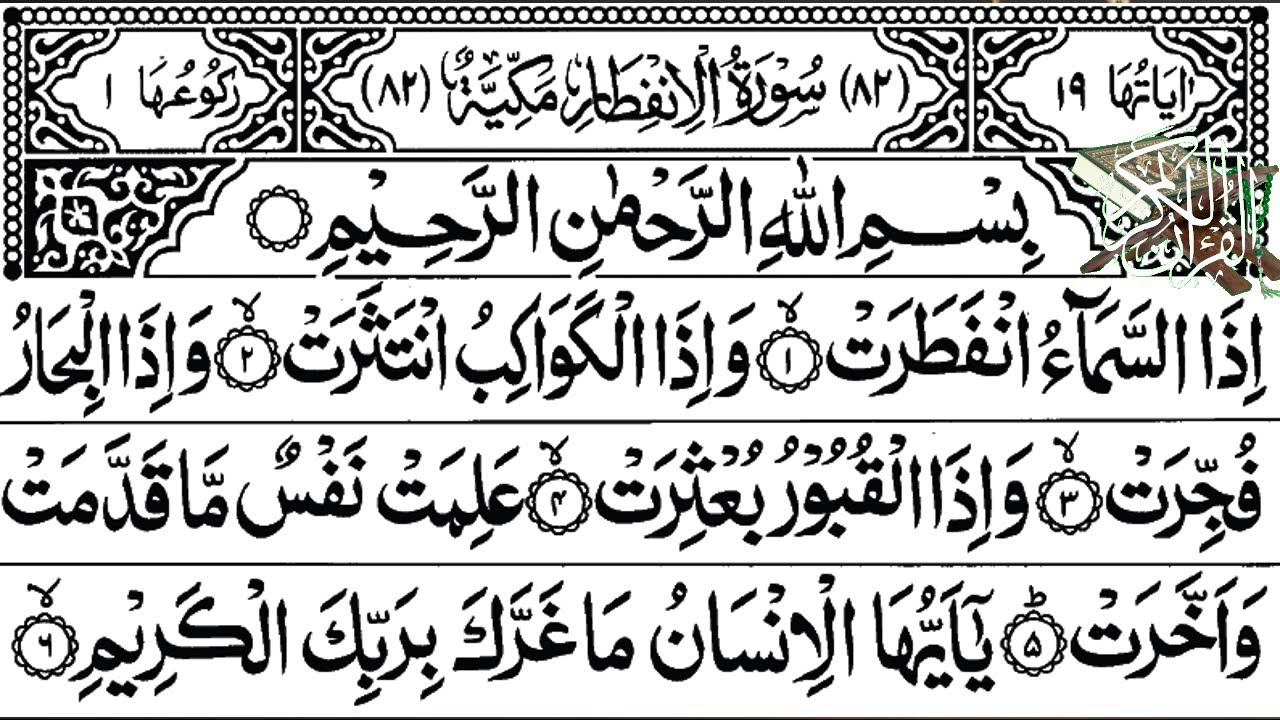 اٰيَاتُهَا ١٩ (٨٢) سُوْرَةُ الْاِنْفِطَارِ مَكِّيَّةٌ (٨٢) رُكُوْعُهَا ١
بِسْمِ اللّٰهِ الرَّحْمٰنِ الرَّحِيْمِ
القرآن الكريم
اِذَا السَّمَآءُ انْفَطَرَتْ ۙ‏﴿۱﴾ وَاِذَا الْكَوَاكِبُ انْتَثَرَتْ ۙ‏﴿۲﴾ وَاِذَا الْبِحَارُ
فُجِّرَتْ ۙ‏﴿۳﴾ وَاِذَا الْقُبُوْرُ بُعْثِرَتْ ۙ‏﴿۴﴾ عَلِمَتْ نَفْسٌ مَّا قَدَّمَتْ
وَاَخَّرَتْ ؕ‏﴿۵﴾ يٰۤاَيُّهَا الْاِنْسَانُ مَا غَرَّكَ بِرَبِّكَ الْكَرِيْمِ ۙ‏﴿۶﴾